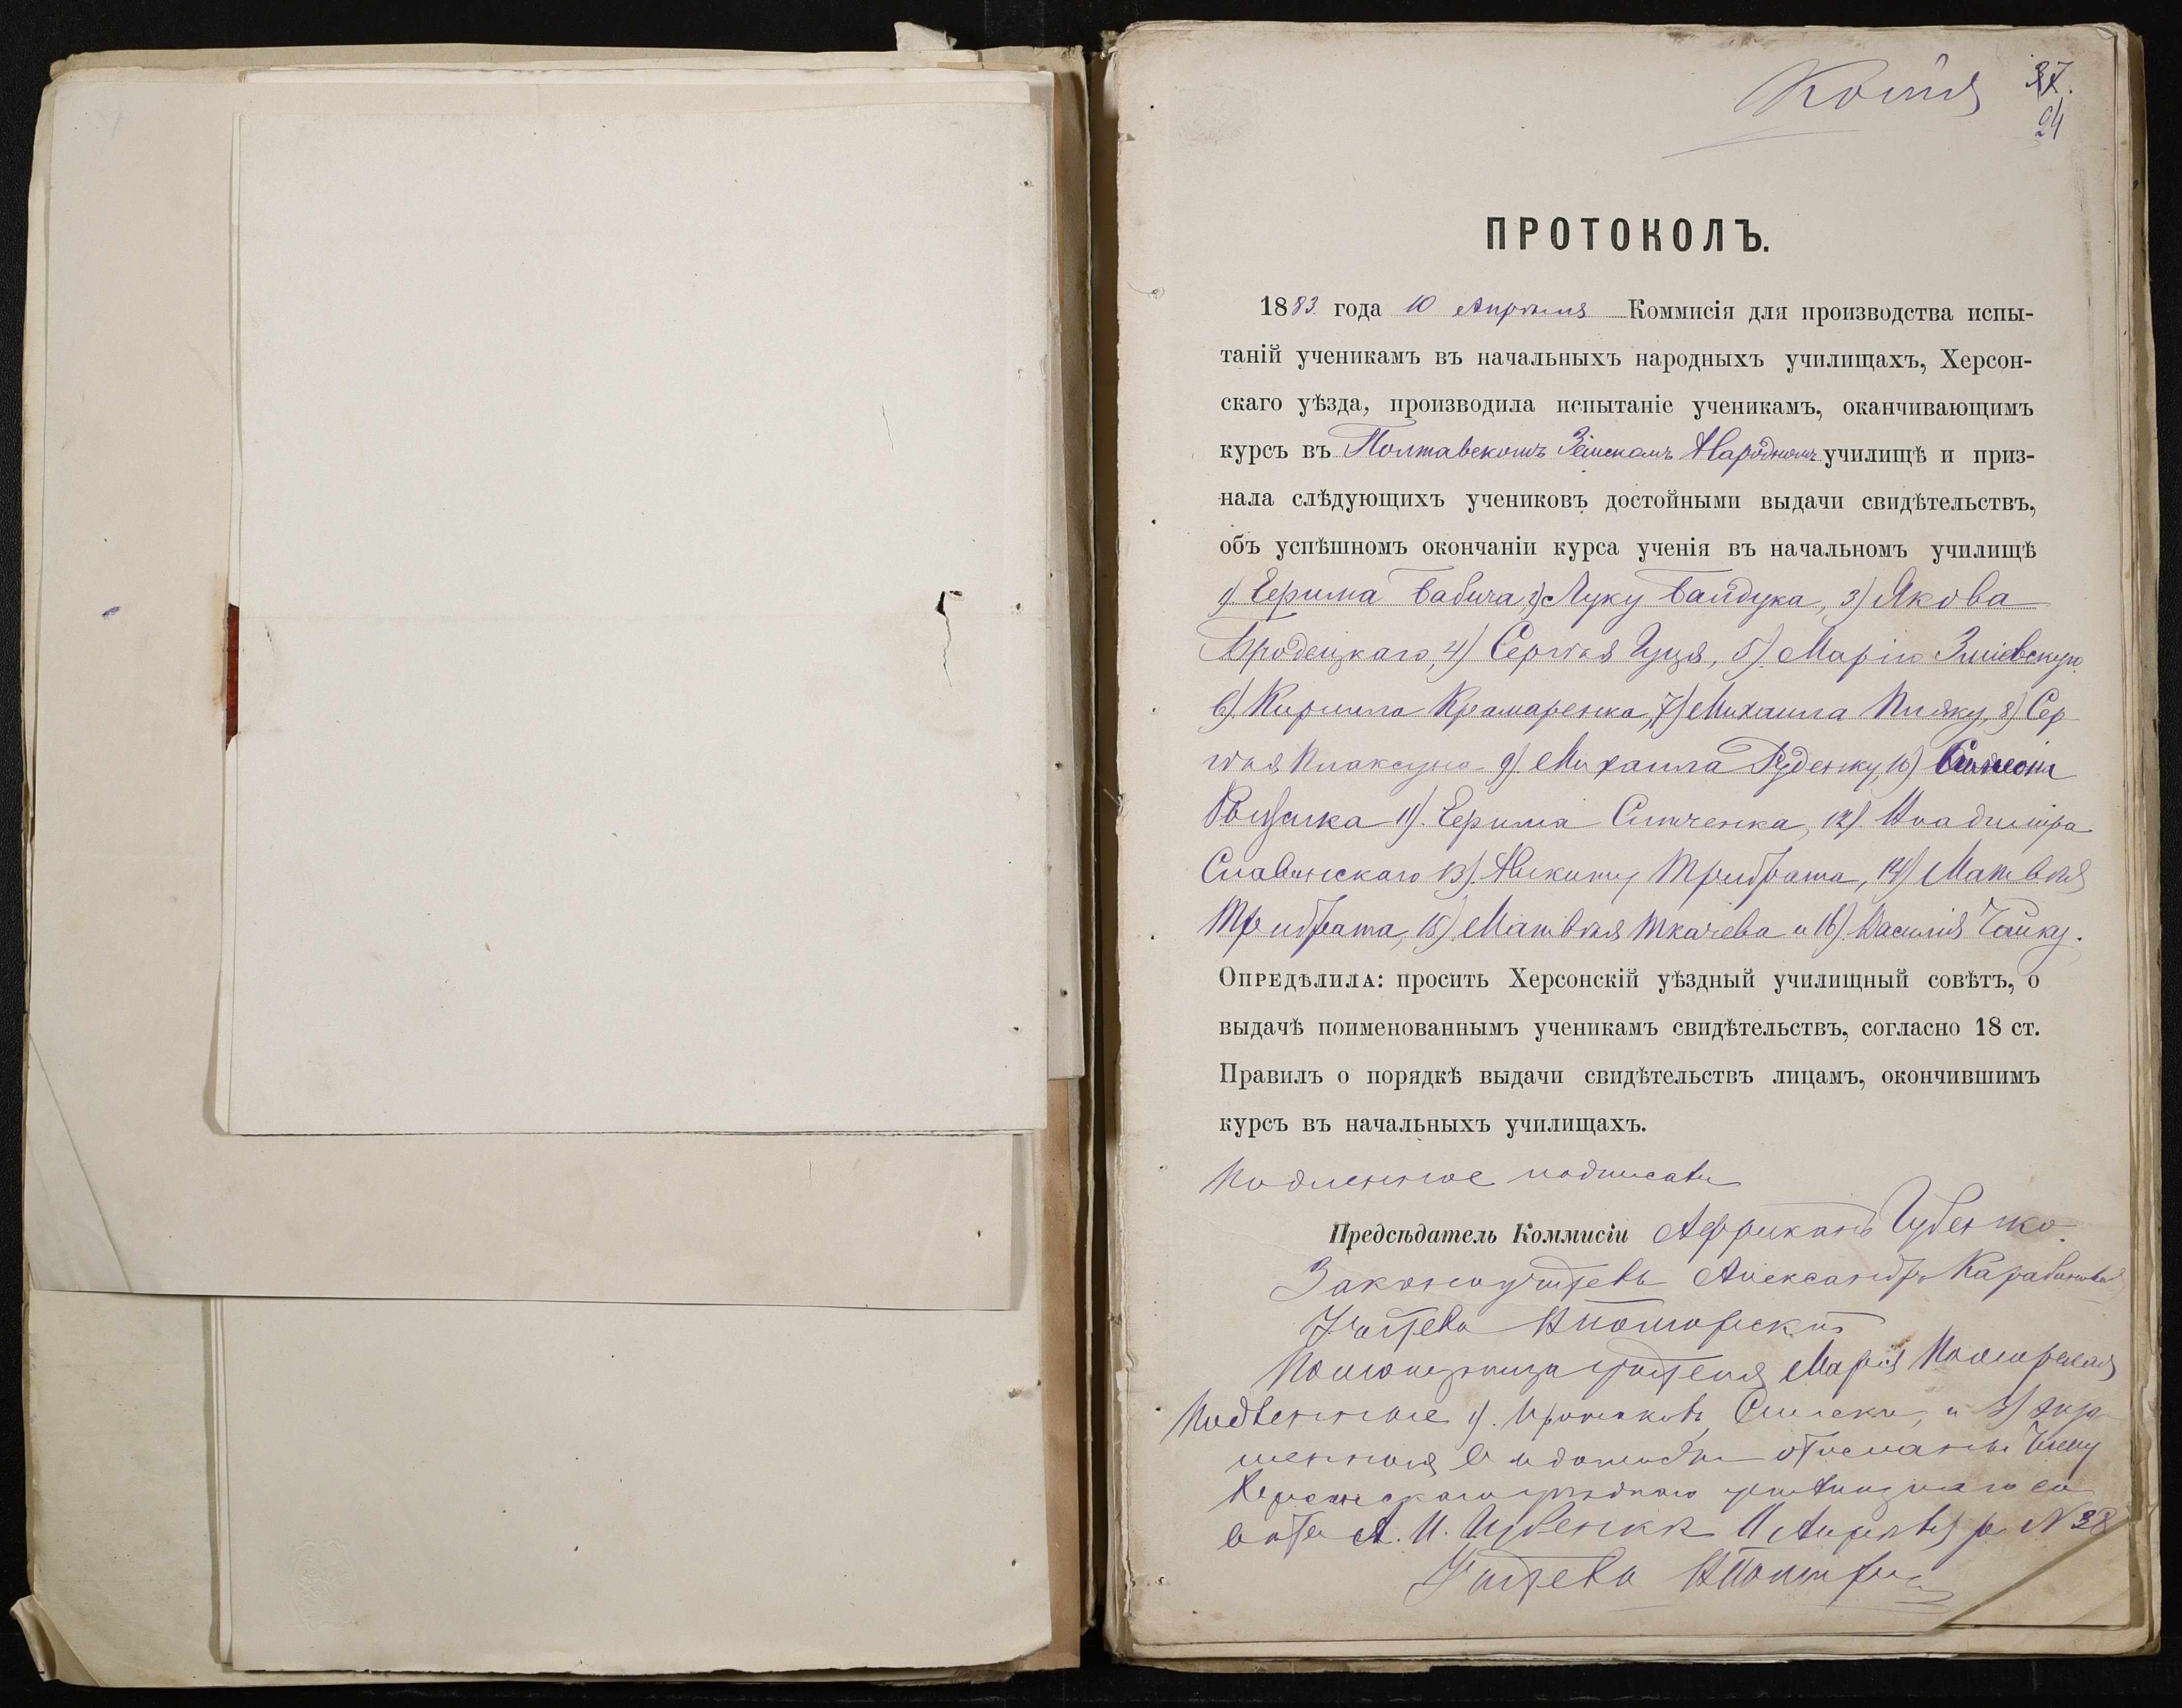 Копія
37.
24
ПРОТОКОЛЪ.
1883. года 10 Апрѣля Коммисія для производства испы-
таній ученикамъ въ начальныхъ народныхъ училищахъ, Херсон-
скаго уѣзда, производила испытаніе ученикамъ, оканчивающимъ
курсъ въ Полтавскомъ Земскомъ Народномъ училищѣ и приз-
нала слѣдующихъ учениковъ достойными выдачи свидѣтельствъ,
объ успѣшномъ окончаніи курса ученія въ начальномъ училищѣ
1) Ефима Бабича, 2) Луку Байдука, 3) Якова
Бродецкаго, 4) Сергѣя Гуця, 5) Марію Зміевскую
6) Кирилла Крамаренка, 7) Михаила 8) Сер-
гѣя Плаксуна 9) Михаила Руденку, 10) Симеона
11) Ефима 12) Владиміра
Славинскаго 13) Никиту Трибрата, 14) Матвѣя
Трибрата, 15) Матвѣя Ткачева и 16) Василія Чайку.
Опредѣлила: просить Херсонскій уѣздный училищный совѣтъ, о
выдачѣ поименованнымъ ученикамъ свидѣтельствъ, согласно 18 ст.
Правилъ о порядкѣ выдачи свидѣтельствъ лицамъ, окончившимъ
курсъ въ начальныхъ училищахъ.
Подленное подписали
Предсѣдатель Коммисіи Африканъ Губенко.
Законоучитель Александръ
Учитель
Помощница учителя Марія
Подленные 1) Протоколъ, Списокъ, и
вѣдомость отосланы Члену
Херсонскаго уѣзднаго училищнаго со
вѣта А. И. Губенкѣ 11 Апрѣля № 38
Учитель